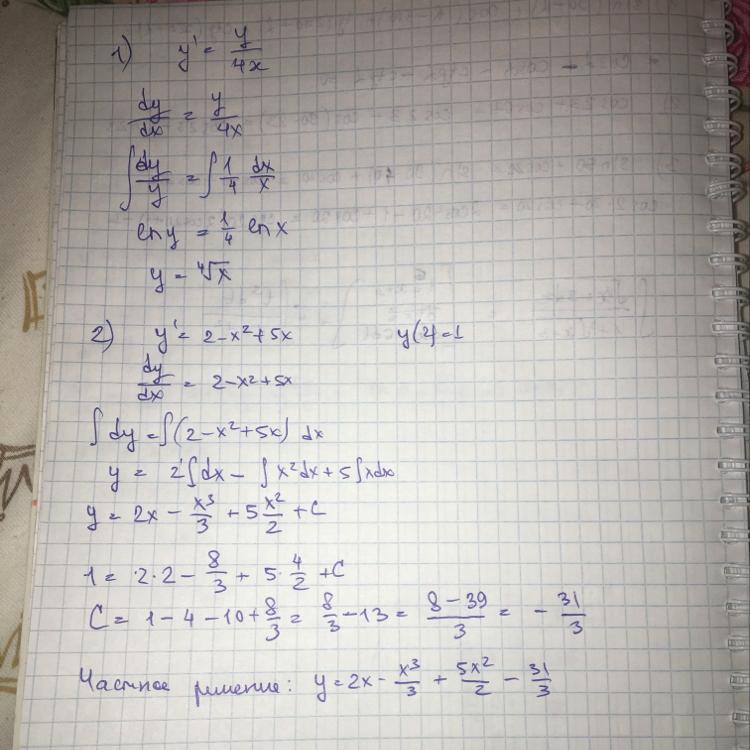 1) y' = y/4x
dy/dx = y/4x
∫ dy/y = ∫ 1/4 dx/x
ln y = 1/4 ln x
y = ⁴√x
2) y' = 2-x²+5x y(2)=1
dy/dx = 2-x²+5x
∫ dy = ∫(2-x²+5x) dx
y = 2∫dx - ∫x²dx + 5∫xdx
y = 2x - x³/3 + 5 x²/2 + C
1 = 2·2 - 8/3 + 5·4/2 + C
C = 1-4-10+8/3 = 8/3 -13 = (8-39)/3 = -31/3
Частное решение: y = 2x - x³/3 + 5x²/2 - 31/3